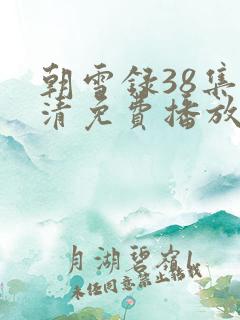 朝雪録38集
清免費播放
月湖碧嶺
未经同意禁止转载